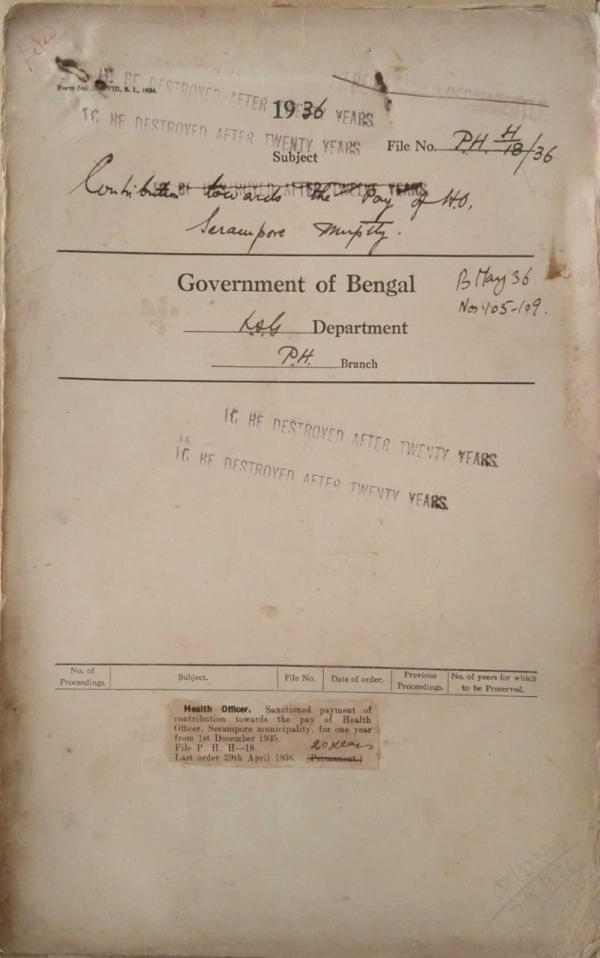 Form No. VIII, S. I., 1934.
TO BE DESTROYED AFTER TWENTY YEARS
1936
TO BE DESTROYED AFTER TWENTY YEARS
File No. P.H. H/18/36
Subject
TO BE DESTROYED AFTER TWELVE YEARS
Contribution towards the Pay of H.O.
Serampore
Government of Bengal
B May 36
Nos 105-109.
L.S.G Department
P.H. Branch
TO BE DESTROYED AFTER TWENTY YEARS
TO BE DESTROYED AFTER TWENTY YEARS
No. of Proceedings. Subject. File No. Date of order. Previous Proceedings. No. of years for which to be Preserved.
Health Officer. Sanctioned payment of
contribution towards the pay of Health
Officer, Serampore municipality, for one year
from 1st December 1935.
File P. H. H—18. 20 years
Last order 29th April 1936. (Permanent.)